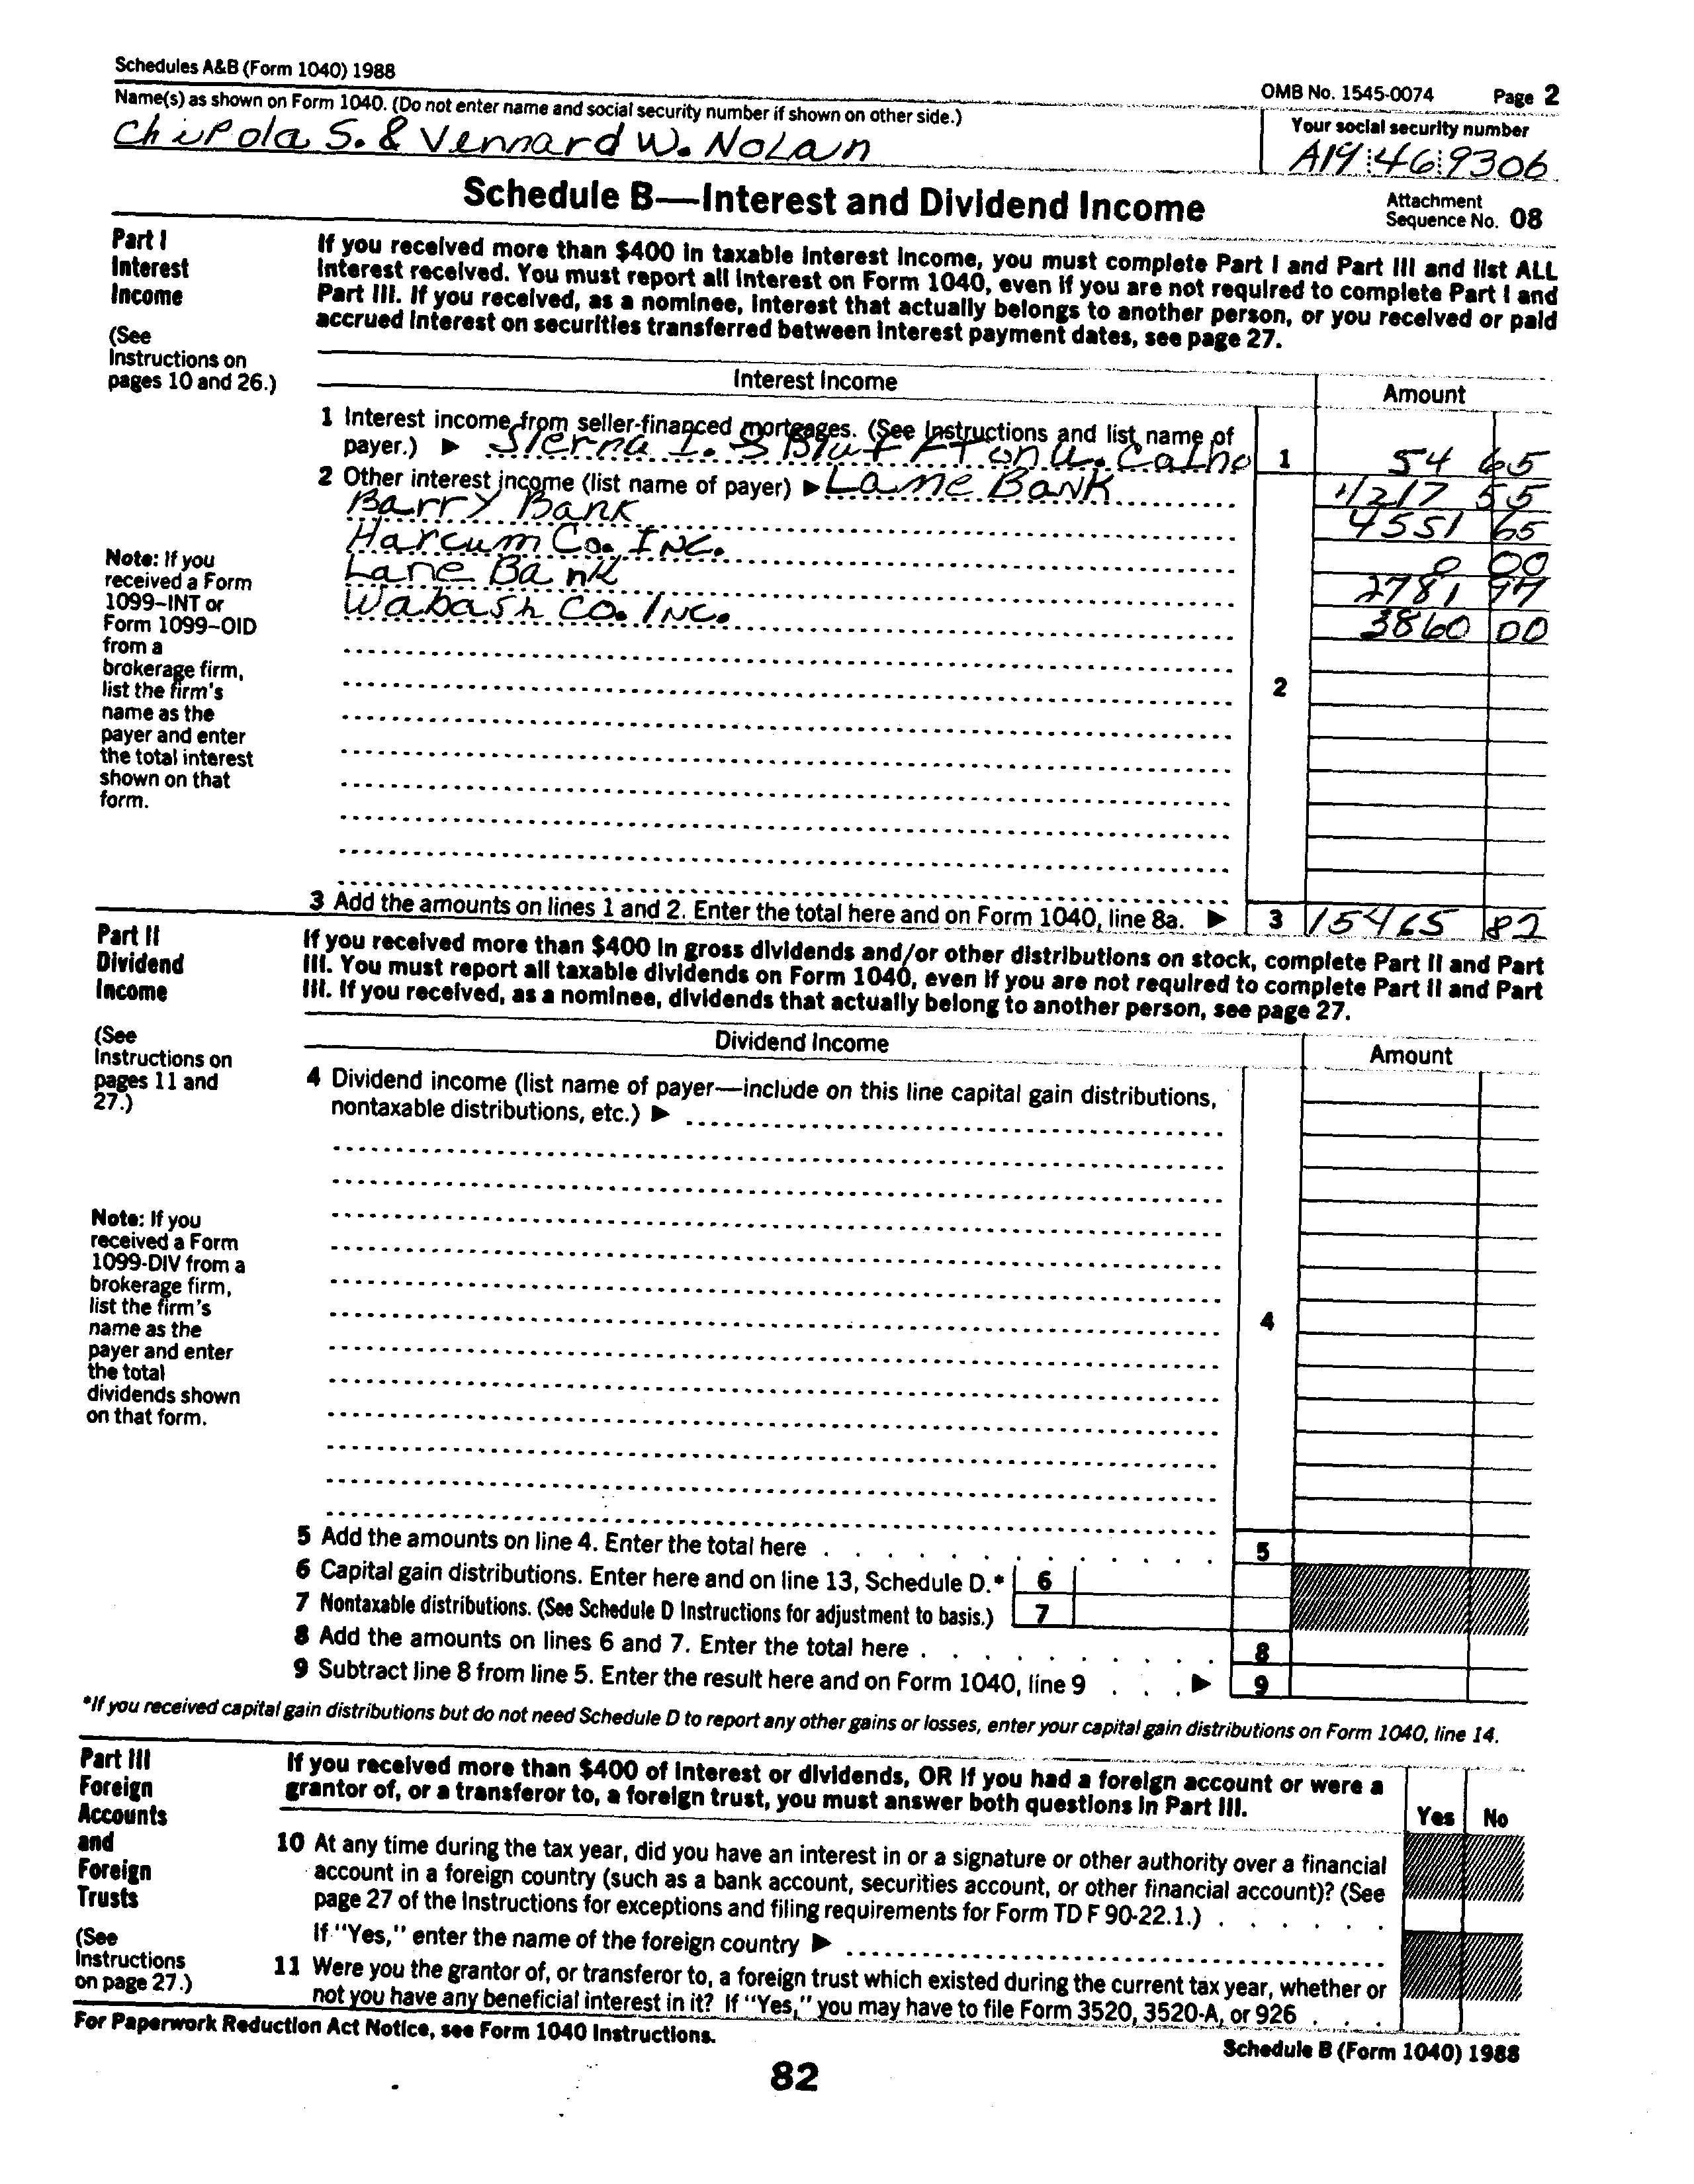 Schedules A&B (Form 1040) 1988
OMB No. 1545-0074 Page 2
Name(s) as shown on Form 1040. (Do not enter name and social security number if shown on other side.)
Your social security number
Chipola S. & Vennard W. Nolan
A19 46 9306
Schedule B—Interest and Dividend Income
Attachment
Sequence No. 08
Part I
Interest
Income
(See
Instructions on
pages 10 and 26.)
If you received more than $400 in taxable interest income, you must complete Part I and Part III and list ALL
interest received. You must report all interest on Form 1040, even if you are not required to complete Part I and
Part III. If you received, as a nominee, interest that actually belongs to another person, or you received or paid
accrued interest on securities transferred between interest payment dates, see page 27.
Interest Income
Amount
1 Interest income from seller-financed mortgages. (See Instructions and list name of
payer.) ▶ Sierra I. S Bluffton U. Catho 1 54 65
2 Other interest income (list name of payer) ▶ Lane Bank 4217 55
Barry Bank 4551 65
Harcum Co. INC. 0 00
Lane Bank 2781 97
Wabash Co. INC. 3860 00
2
Note: If you
received a Form
1099–INT or
Form 1099–OID
from a
brokerage firm,
list the firm's
name as the
payer and enter
the total interest
shown on that
form.
3 Add the amounts on lines 1 and 2. Enter the total here and on Form 1040, line 8a. ▶ 3 15465 82
Part II
Dividend
Income
(See
Instructions on
pages 11 and
27.)
If you received more than $400 in gross dividends and/or other distributions on stock, complete Part II and Part
III. You must report all taxable dividends on Form 1040, even if you are not required to complete Part II and Part
III. If you received, as a nominee, dividends that actually belong to another person, see page 27.
Dividend Income
Amount
4 Dividend income (list name of payer—include on this line capital gain distributions,
nontaxable distributions, etc.) ▶
4
Note: If you
received a Form
1099-DIV from a
brokerage firm,
list the firm's
name as the
payer and enter
the total
dividends shown
on that form.
5 Add the amounts on line 4. Enter the total here 5
6 Capital gain distributions. Enter here and on line 13, Schedule D.* 6
7 Nontaxable distributions. (See Schedule D Instructions for adjustment to basis.) 7
8 Add the amounts on lines 6 and 7. Enter the total here 8
9 Subtract line 8 from line 5. Enter the result here and on Form 1040, line 9 ▶ 9
*If you received capital gain distributions but do not need Schedule D to report any other gains or losses, enter your capital gain distributions on Form 1040, line 14.
Part III
Foreign
Accounts
and
Foreign
Trusts
(See
Instructions
on page 27.)
If you received more than $400 of interest or dividends, OR if you had a foreign account or were a
grantor of, or a transferor to, a foreign trust, you must answer both questions in Part III.
Yes No
10 At any time during the tax year, did you have an interest in or a signature or other authority over a financial
account in a foreign country (such as a bank account, securities account, or other financial account)? (See
page 27 of the Instructions for exceptions and filing requirements for Form TD F 90-22.1.)
If "Yes," enter the name of the foreign country ▶
11 Were you the grantor of, or transferor to, a foreign trust which existed during the current tax year, whether or
not you have any beneficial interest in it? If "Yes," you may have to file Form 3520, 3520-A, or 926
For Paperwork Reduction Act Notice, see Form 1040 Instructions.
Schedule B (Form 1040) 1988
82